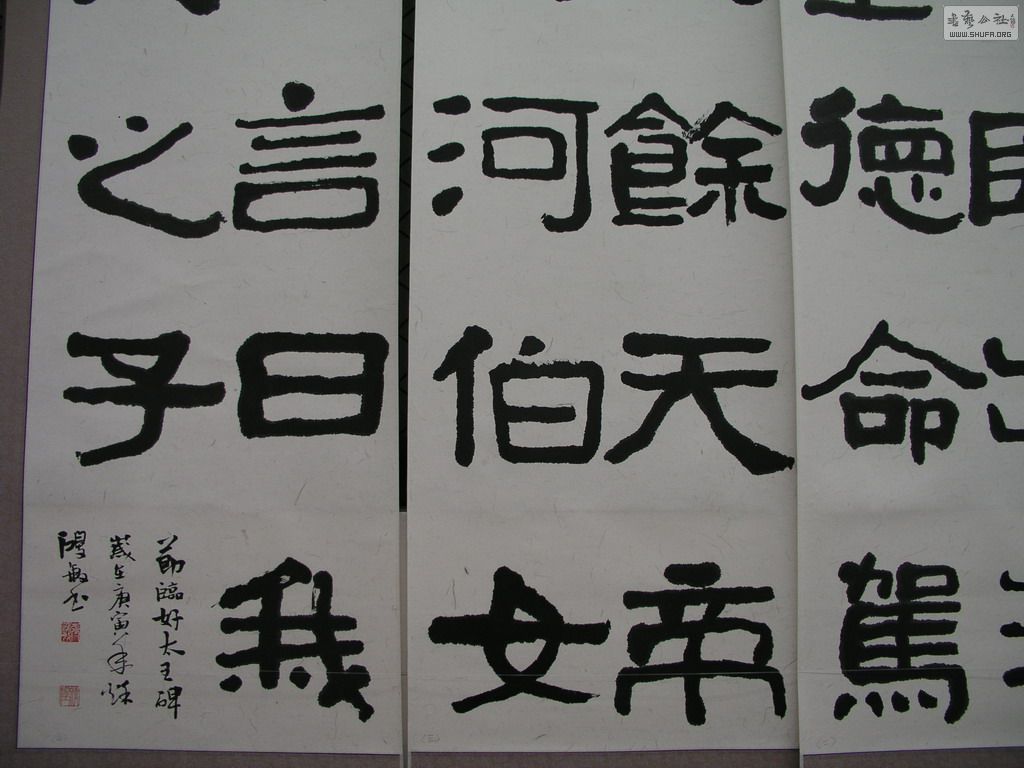 德命駕
餘天帝
河伯女
言曰我
之子
節臨好大王碑
歲在庚寅年秋
鴻敏書
書藝公社
WWW.SHUFA.ORG